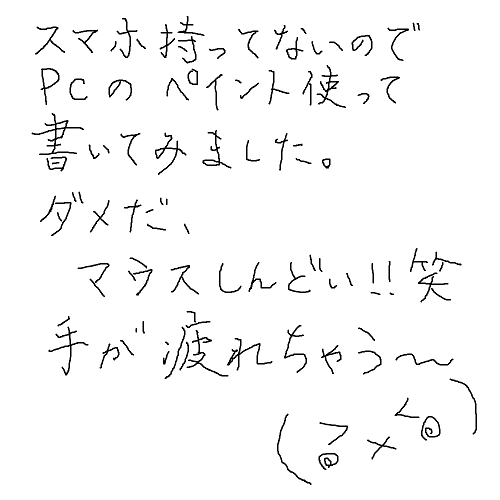 スマホ持ってないので
PCのペイント使って
書いてみました。
ダメだ、
マウスしんどい!!笑
手が疲れちゃう〜